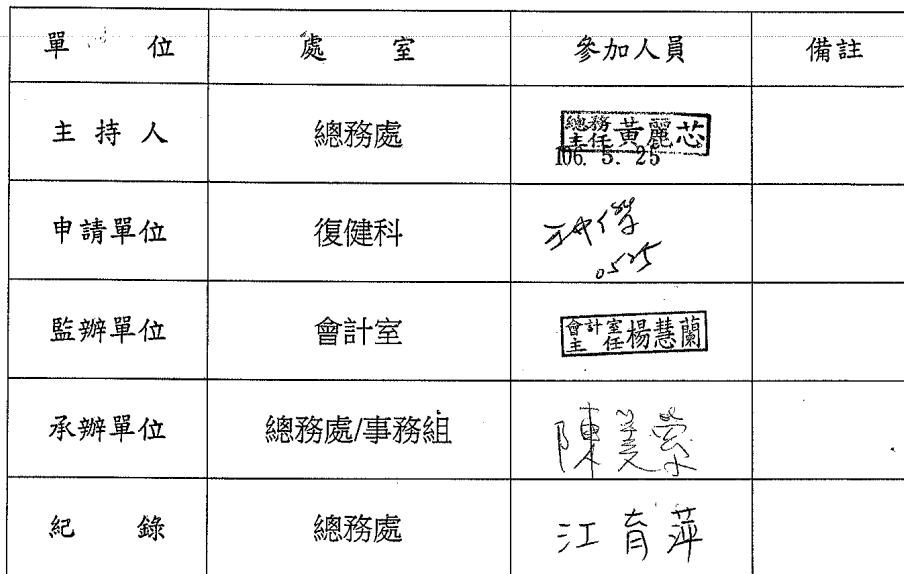 單 位 處 室 參加人員 備註
主 持 人 總務處 總務主任 黃麗芯
106. 5. 25
申請單位 復健科
0525
監辦單位 會計室 會計室主任 楊慧蘭
承辦單位 總務處/事務組 陳美縈
紀 錄 總務處 江育萍